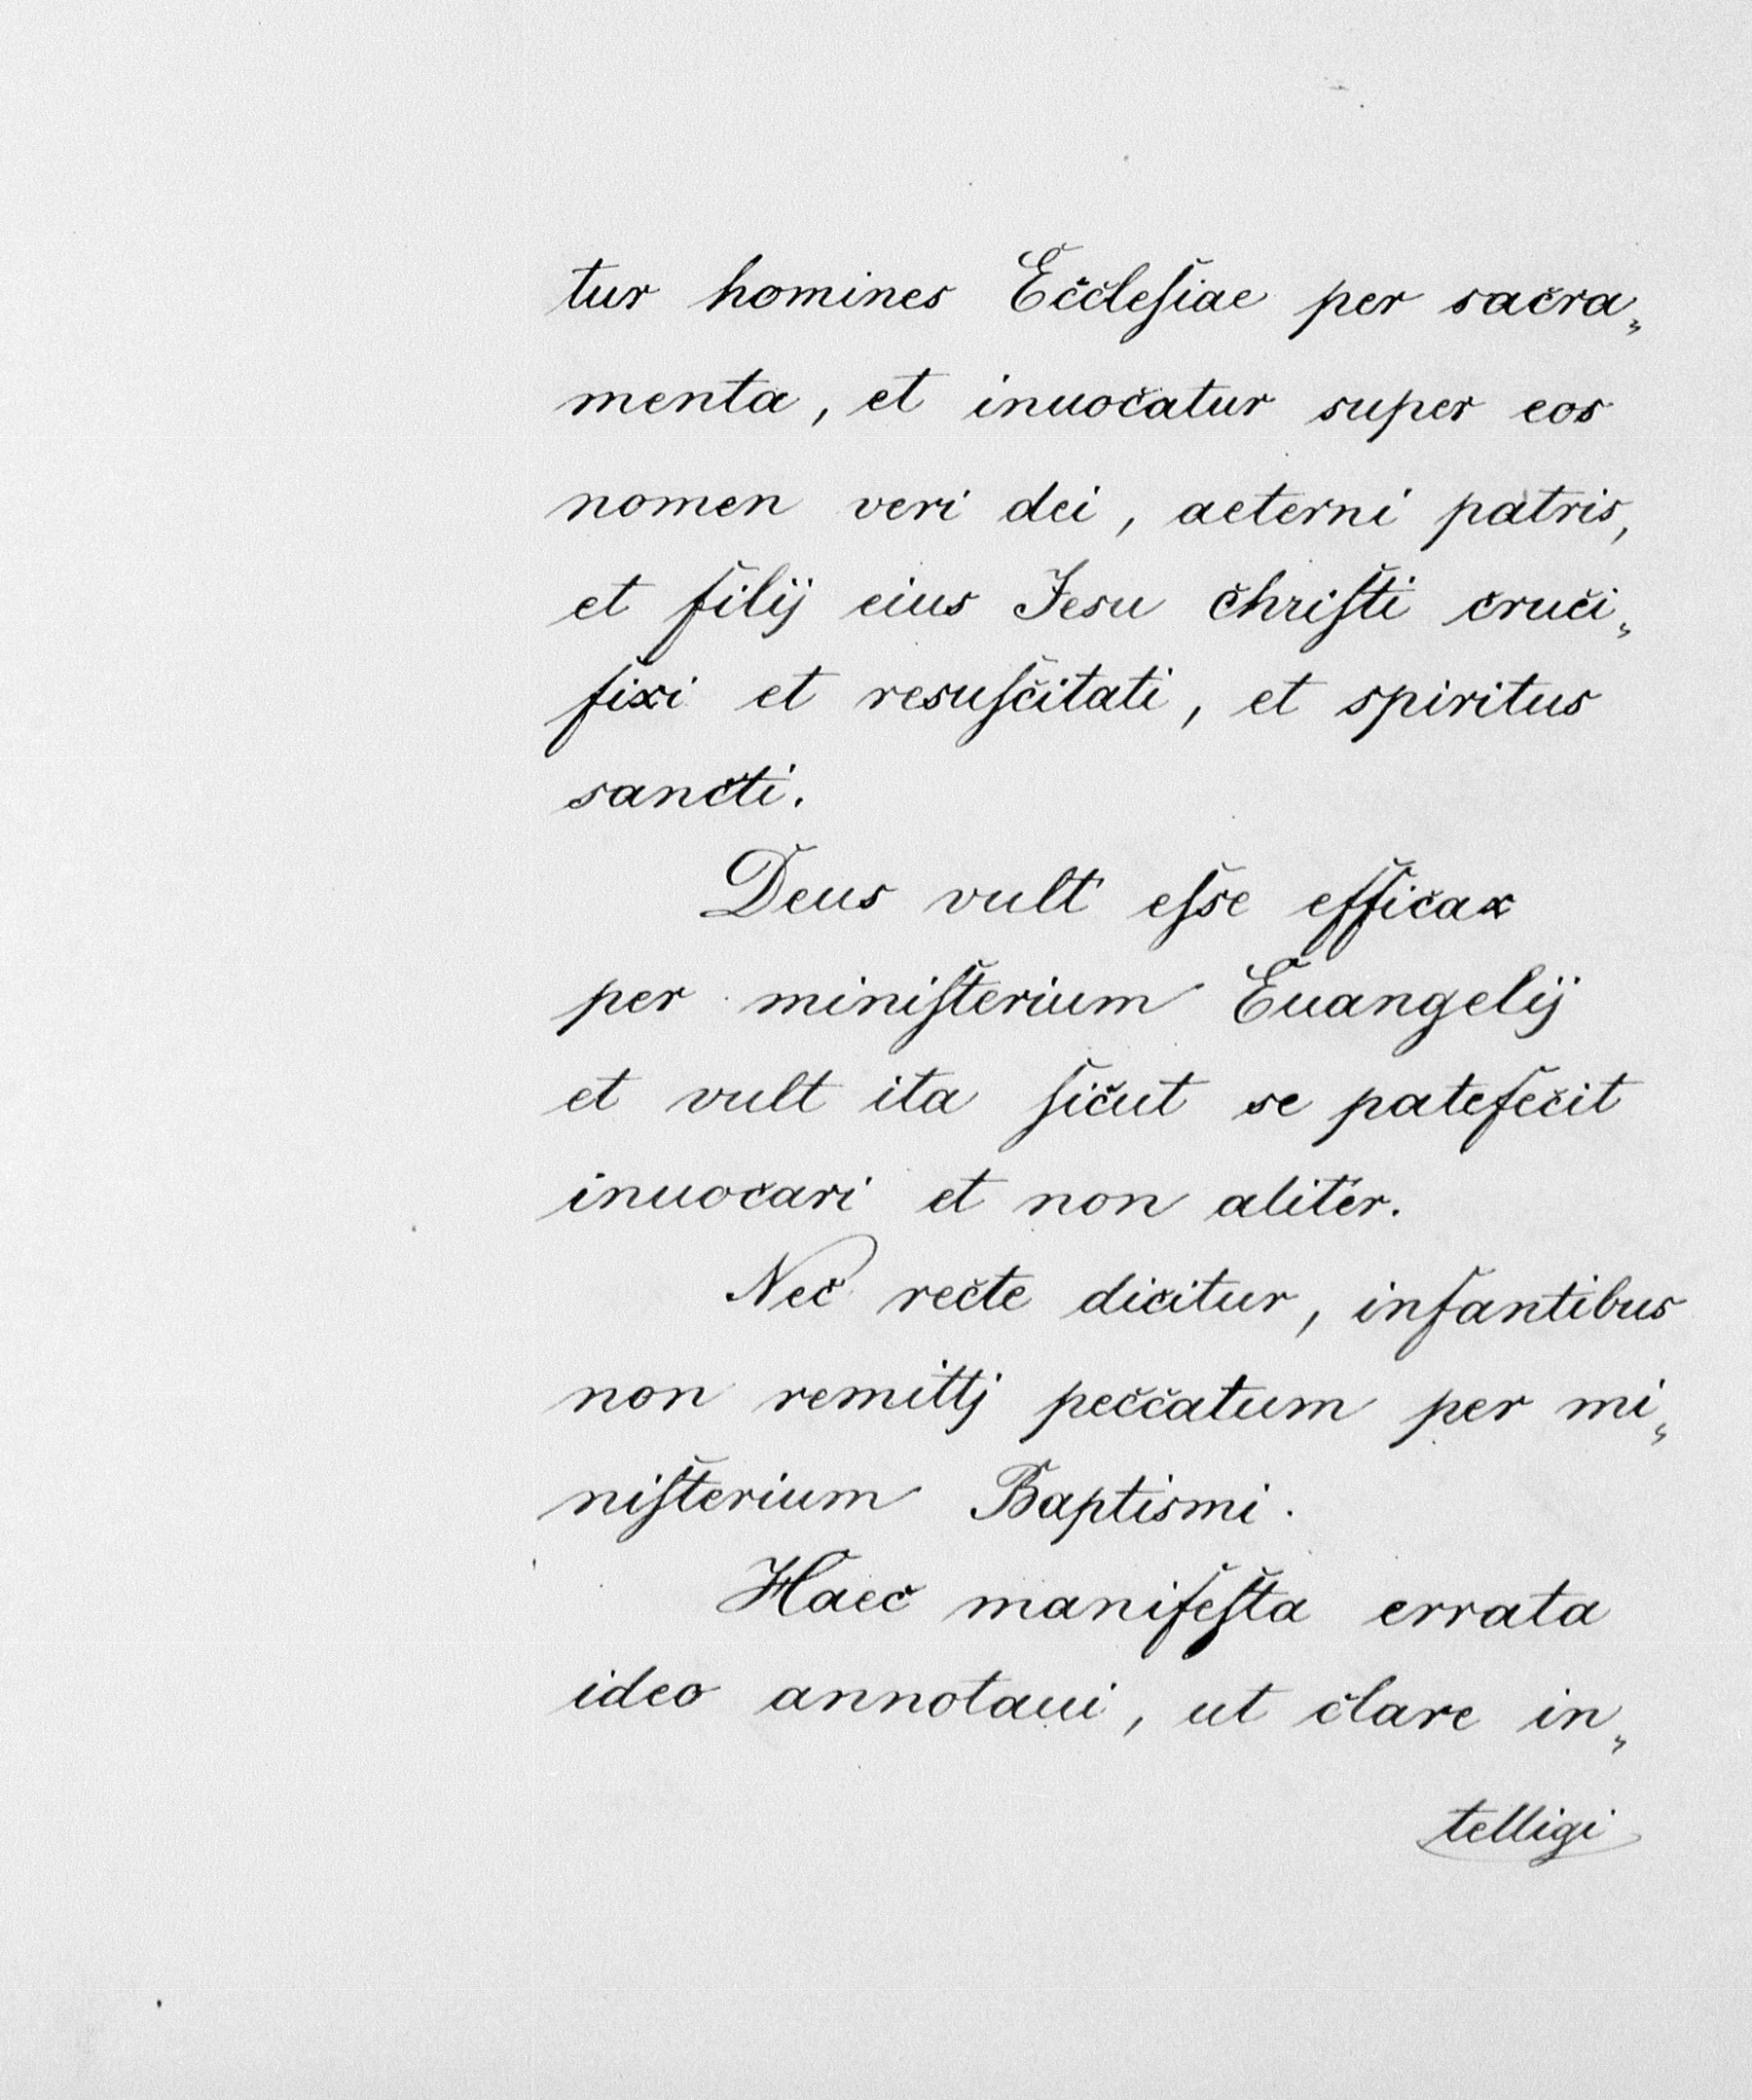 tur homines Ecclesiae per sacra„
menta, et inuocatur super eos
nomen veri dei, aeterni patris,
et filij eius Jesu christi cruci„
fixi et resuscitati, et spiritus
sancti.
Deus vult esse efficax
per ministerium Euangelij
et vult ita sicut se patefecit
inuocari et non aliter.
Nec recte dicitur, infantibus
non remittj peccatum per mi„
nisterium Baptismi.
Haec manifesta errata
ideo annotaui, ut clare in„
telligi